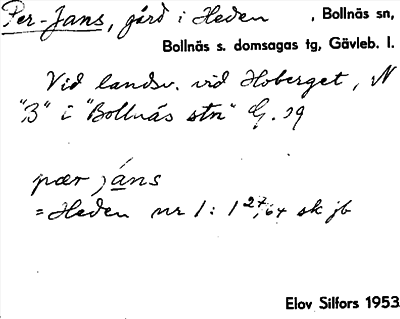 Per-Jans, gård i Heden, Bollnäs sn,
Bollnäs s. domsagas tg, Gävleb. l.
Vid landsv. vid Hoberget, N
"B" i "Bollnäs stn" G. 29
pær jáns
= Heden nr 1:1 27,64 sk jb
Elov Silfors 1953